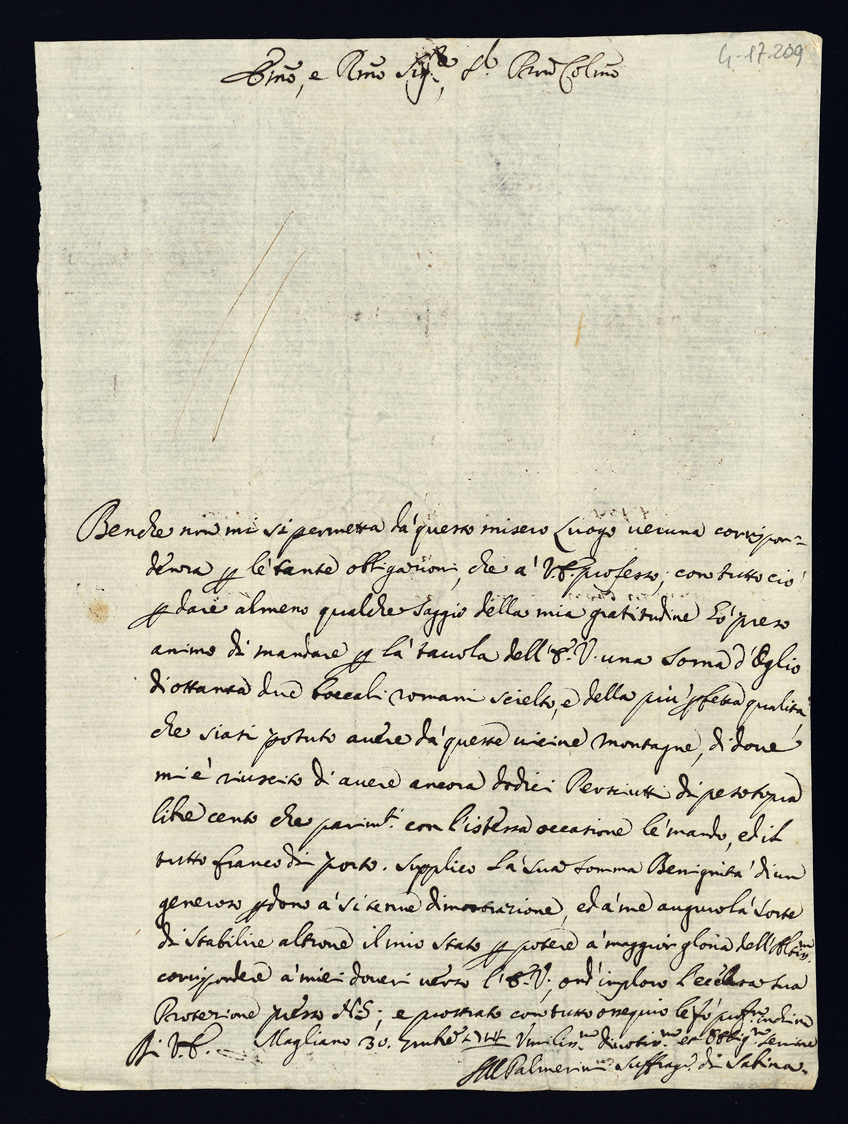 4-17.209
Emo, e Rmo Sigre, Prn Colmo
Benche non mi si permetta da questo misero Luogo veruna corrispon-
denza p le tante obligazioni, che a' V.E. professo; con tutto cio'
p dare almeno qualche saggio della mia gratitudine ho' preso
animo di mandare p la' tavola dell'E.V. una soma d'Oglio
di ottanta due boccali romani scielto, e della più pfetta qualità,
che siasi potuto avere da' queste vicine montagne, di dove
mi è riuscito di avere ancora dodici Persciutti di peso sopra
libre cento che parimte con l'istessa occasione le mando, ed il
tutto franco di porto. Supplico la' sua somma Benignità di un
generoso pdono a' si tenue dimostrazione, ed a' me auguro la' sorte
di stabilire altrove il mio stato p potere a' maggior gloria dell'Altissmo
corrispondere a' miei doveri verso l'E.V., ond'imploro l'eccelsa sua
Protezione presso N.S; e prostrato con tutto ossequio le fo' profma inchino
Di V.E. Magliano 30. 1747 Umilissmo divotismo ed Obligmo Servitore
Palmerini suffrago di Sabina.